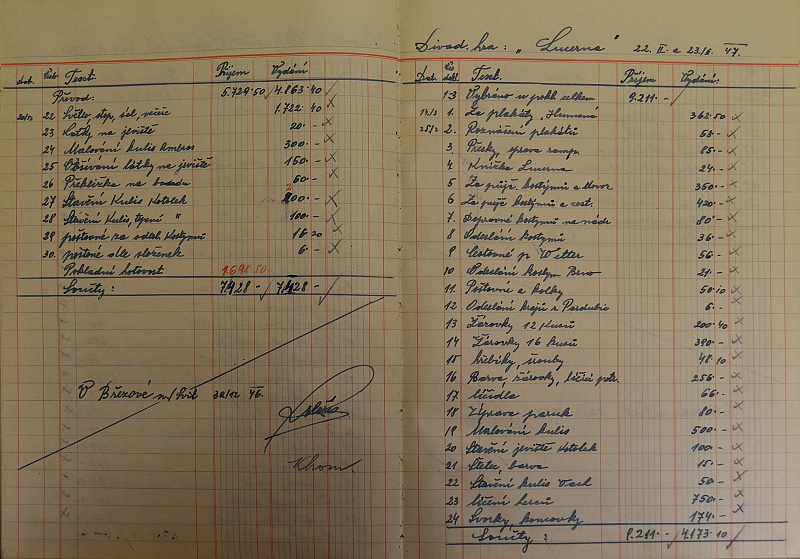 dat. čís Text: Příjem Vydání
Převod: 5.729.50 4.863.40
20/12 22 Světlo, typ, sál, večeře 1.722.40
23 Látky na jeviště 20.-
24 Malování kulis Ambros 300.-
25 Obšívání látky na jeviště 150.-
26 Překližka na 60.-
27 Stavění Kulis Kotolek 200.-
28 Stavění Kulis, " 100.-
29 poštovné za odesl. Kostymů 16.20
30. poštovné dle složenek 6.-
Pokladní hotovost 1.698.50
Součty: 7.428.- 7.428.-
V Březové n/Svit 30/12 46.
Divad. hra: „Lucerna" 22. II. a 23/II. 47.
Dat. čís dokl. Text. Příjem Vydání:
1-3 Vybráno v pokl. celkem 9.211.-
14/2 1. Za plakáty „Humaná 362.50
25/2 2. Roznášení plakátů 53.-
3 Přesky, sprava ramp. 85.-
4 Knížka Lucerna 24.-
5 Za půjč. kostymů a dovoz 350.-
6 Za půjč. kostýmů a cest. 420.-
7. Dopravné kostymů na nádr. 80.-
8 Odeslání kostymů 36.-
9 Cestovné p. Wetter 56.-
10 Odeslání kostym Brno 21.-
11 Poštovné a kolky 50.10
12 Odeslání krojů z Pardubic 6.-
13 Žárovky 12 Kusů 200.40
14 Žárovky 16 Kusů 390.-
15 Hřebíky, šrouby 48.10
16 Barva žárovky, líčící potr. 256.-
17 líčidla 66.-
18 Zprava paruk 80.-
19 Malování kulis 500.-
20 Stavění jeviště Kotolek 100.-
21 Štelec, barva 15.-
22 Stavění kulis Vach 50.-
23 líčení herců 750.-
24 Svorky, koncovky 174.-
Součty: 9.211.- 4.173.10